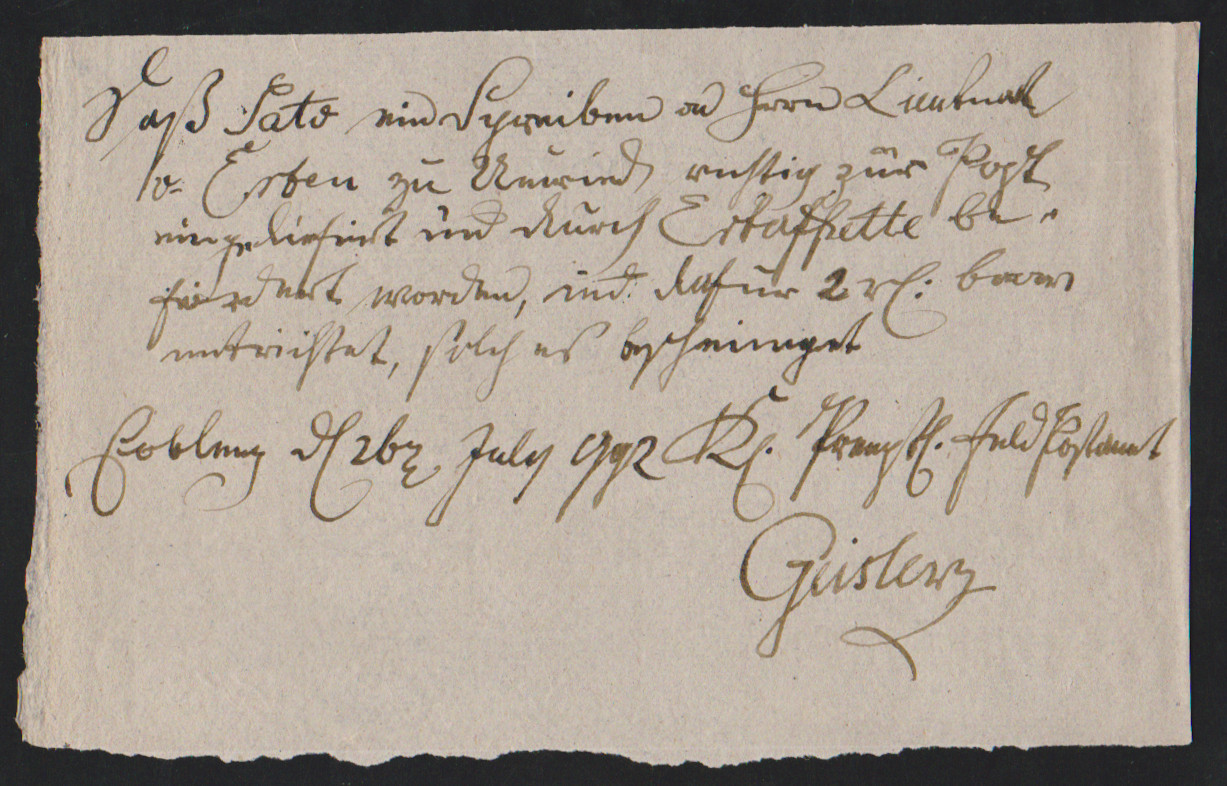 Daß dato ein Schreiben an Herrn Lieutnant
v. Erben zu Neuwied richtig zur Post
eingeliefert und durch Estaffette be-
fördert worden, und dafür 2 rl: baar
entrichtet, solches bescheiniget
Coblenz d 26 July 992 Kl. Preuß. Feld Postamt
Geisler